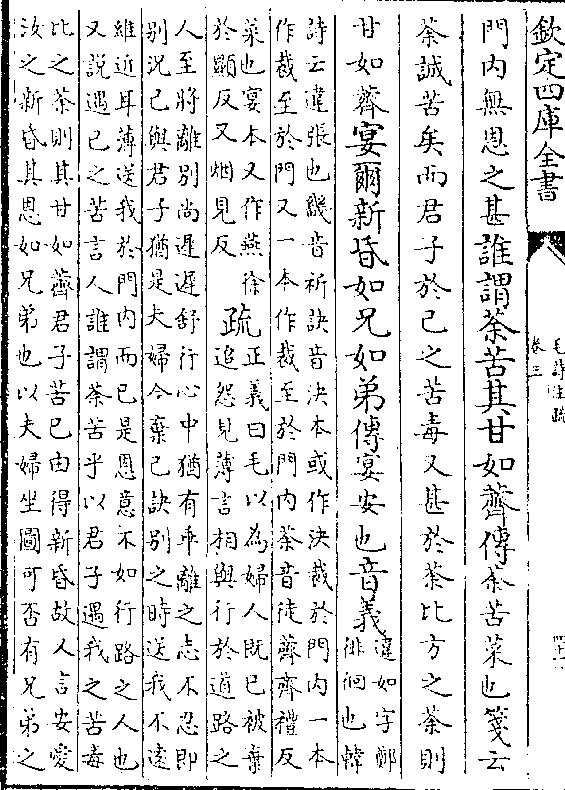 欽定四庫全書
毛詩注疏
卷三
門内無恩之甚誰謂荼苦其甘如薺傳荼苦菜也箋云
荼誠苦矣而君子於己之苦毒又甚於荼比方之荼則
甘如薺宴爾新昏如兄如弟傳宴安也音義
違如字鄭
徘徊也韓
詩云違張也畿音祈訣音決本或作決裁於門内一本
作裁至於門又一本作裁至於門内荼音徒薺齊禮反
菜也宴本又作燕徐
於顯反又烟見反
疏
正義曰毛以為婦人既已被棄
追怨見薄言相與行於道路之
人至將離別尚遲遲舒行心中猶有乖離之志不忍即
別況己與君子猶是夫婦今棄己訣別之時送我不遠
維近耳薄送我於門内而已是恩意不如行路之人也
又說遇己之苦言人誰謂荼苦乎以君子遇我之苦毒
比之荼則其甘如薺君子苦己由得新昏故人言安愛
汝之新昏其恩如兄弟也以夫婦坐圖可否有兄弟之